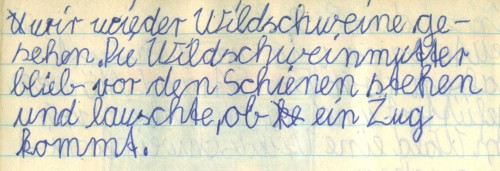 wir wieder Wildschweine ge-
sehen. Die Wildschweinmutter
blieb vor den Schienen stehen
und lauschte, ob ein Zug
kommt.